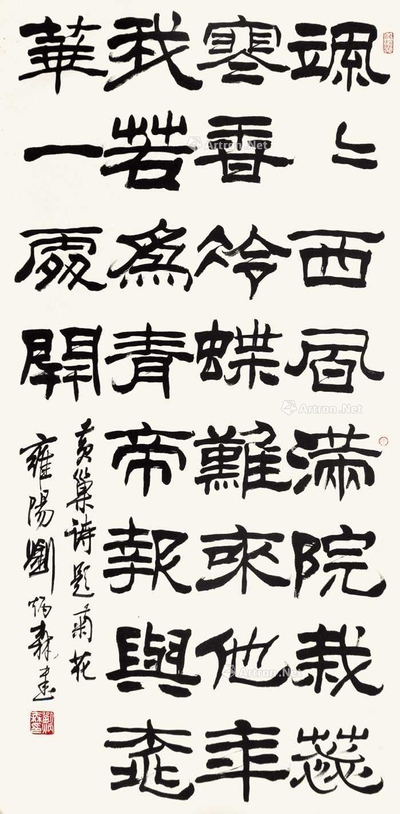 颯〻西風滿院栽蕊
寒香冷蝶難來他年
我若為青帝報與桃
華一處開
黃巢詩題菊花
雍陽劉炳森書
Artron.Net
Artron.Net
Artron.Net
Artron.Net